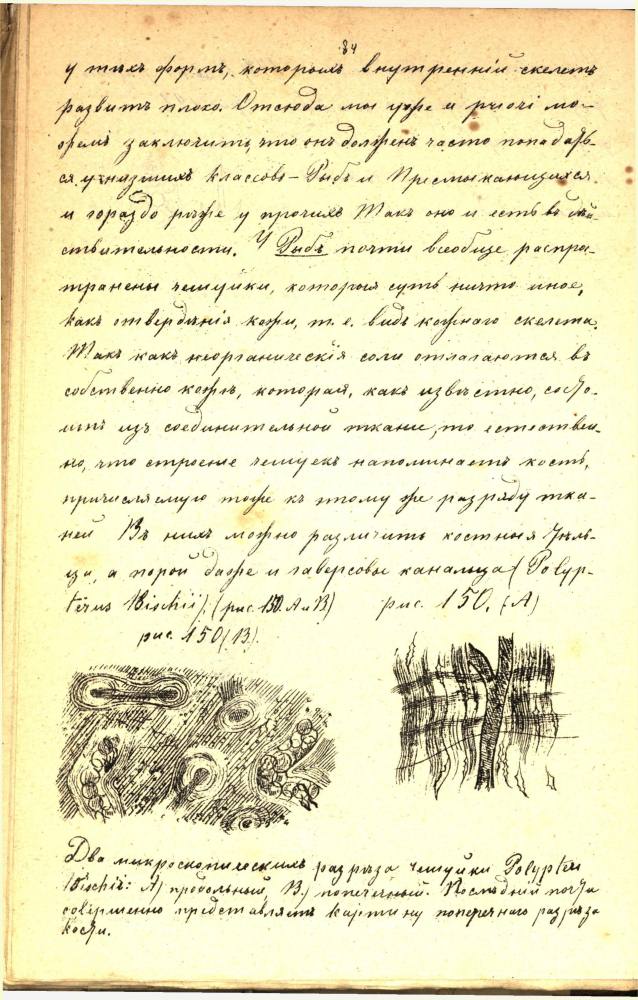 84
у тѣхъ формъ, которыхъ внутренній скелетъ
развитъ плохо. Отсюда мы уже a priori мо-
жемъ заключить, что онъ долженъ часто попадать-
ся у низшихъ классовъ – Рыбъ и Пресмыкающихся
и гораздо рѣже у прочихъ Такъ оно и есть въ дѣй
ствительности. У Рыбъ почти всеобще распро-
транены чешуйки, которыя суть ничто иное,
какъ отвердѣнія кожи, т. е. видъ кожнаго скелета.
Такъ какъ неорганическія соли отлагаются въ
собственно кожѣ, которая, какъ извѣстно, состо-
итъ изъ соединительной ткани, то естествен-
но, что строение чешуекъ напоминаетъ кость,
причисляемую тоже къ этому же разряду тка-
ней Въ нихъ можно различить костныя тѣль-
ца, а порой даже и гаверсовы канальца (Polyp-
terus Bischii). (рис. 150. А и В) рис. 150. (А)
рис. 150 (В).
Два микроскопическихъ разрѣза чешуйки Polypter
Bischii: А) продольный, В.) поперечный. Послѣдній почти
совершенно представляетъ картину поперечнаго разрѣза
кости.